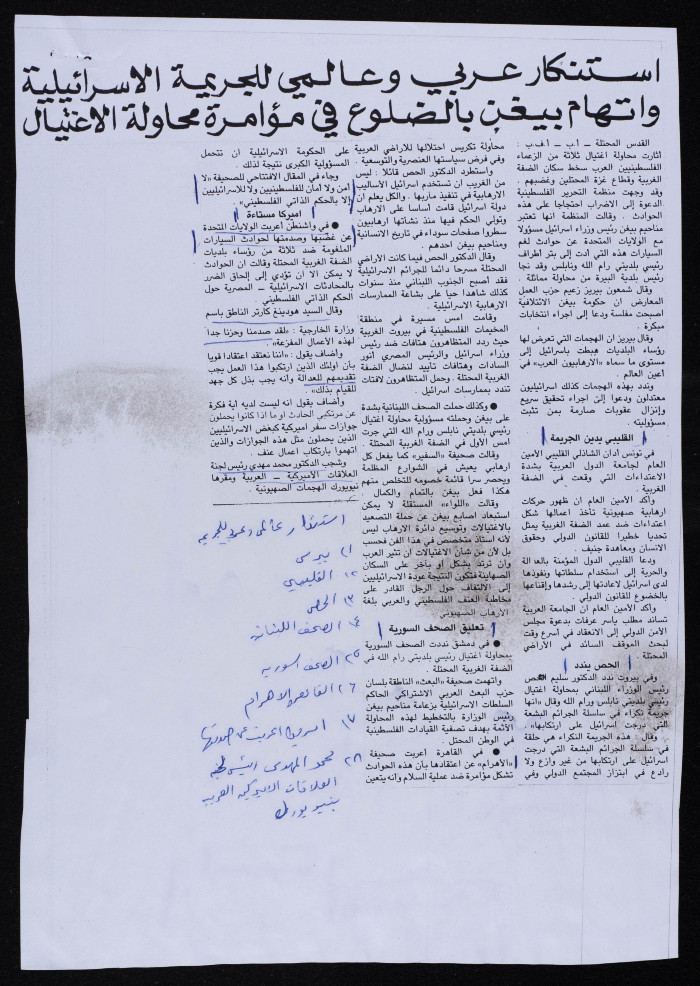 استنكار عربي وعالمي للجريمة الاسرائيلية
واتهام بيغن بالضلوع في مؤامرة محاولة الاغتيال
القدس المحتلة ـ أ.ب ـ أ.ف.ب :
اثارت محاولة اغتيال ثلاثة من الزعماء
الفلسطينيين العرب سخط سكان الضفة
الغربية وقطاع غزة المحتلين وغضبهم .
وقد وجهت منظمة التحرير الفلسطينية
الدعوة إلى الاضراب احتجاجا على هذه
الحوادث . وقالت المنظمة انها تعتبر
مناحيم بيغن رئيس وزراء اسرائيل مسؤولا
مع الولايات المتحدة عن حوادث لغم
السيارات هذه التي ادت إلى بتر أطراف
رئيسي بلدية رام الله ونابلس وقد نجا
رئيس بلدية البيرة من محاولة مماثلة .
وقال شمعون بيريز زعيم حزب العمل
المعارض ان حكومة بيغن الائتلافية
اصبحت مفلسة ودعا إلى اجراء انتخابات
مبكرة .
وقال بيريز ان الهجمات التي تعرض لها
رؤساء البلديات هبطت باسرائيل إلى
مستوى ما سماه «الارهابيون العرب» في
أعين العالم .
وندد بهذه الهجمات كذلك اسرائيليون
معتدلون ودعوا إلى اجراء تحقيق سريع
وإنزال عقوبات صارمة بمن تثبت
مسؤوليته .
القليبي يدين الجريمة
في تونس ادان الشاذلي القليبي الأمين
العام لجامعة الدول العربية بشدة
الاعتداءات التي وقعت في الضفة
الغربية .
وأكد الأمين العام ان ظهور حركات
ارهابية صهيونية تأخذ اعمالها شكل
اعتداءات ضد عمد الضفة الغربية يمثل
تحديا خطيرا للقانون الدولي وحقوق
الانسان ومعاهدة جنيف .
ودعا القليبي الدول المؤمنة بالعدالة
والحرية إلى استخدام سلطاتها ونفوذها
لدى اسرائيل لاعادتها إلى رشدها وإقناعها
بالخضوع للقانون الدولي .
وأكد الأمين العام ان الجامعة العربية
تساند مطلب ياسر عرفات بدعوة مجلس
الأمن الدولي إلى الانعقاد في أسرع وقت
لبحث الموقف السائد في الأراضي
المحتلة .
الحص يندد
وفي بيروت ندد الدكتور سليم الحص
رئيس الوزراء اللبناني بمحاولة اغتيال
رئيسي بلديتي نابلس ورام الله وقال «انها
جريمة نكراء في سلسلة الجرائم البشعة
التي درجت اسرائيل على ارتكابها» .
وقال : هذه الجريمة النكراء هي حلقة
في سلسلة الجرائم البشعة التي درجت
اسرائيل على ارتكابها من غير وازع ولا
رادع في ابتزاز المجتمع الدولي وفي
محاولة تكريس احتلالها للأراضي العربية
وفي فرض سياستها العنصرية والتوسعية .
واستطرد الدكتور الحص قائلا : ليس
من الغريب ان تستخدم اسرائيل الأساليب
الارهابية في تنفيذ مآربها . والكل يعلم ان
دولة اسرائيل قامت اساسا على الارهاب
وتولى الحكم فيها منذ نشأتها ارهابيون
سطروا صفحات سوداء في تاريخ الانسانية
ومناحيم بيغن احدهم .
وقال الدكتور الحص فيما كانت الأراضي
المحتلة مسرحا دائما للجرائم الاسرائيلية
فقد اصبح الجنوب اللبناني منذ سنوات
كذلك شاهدا حيا على بشاعة الممارسات
الارهابية الاسرائيلية .
وقامت امس مسيرة في منطقة
المخيمات الفلسطينية في بيروت الغربية
حيث ردد المتظاهرون هتافات ضد رئيس
وزراء اسرائيل والرئيس المصري أنور
السادات وهتافات تأييد لنضال الضفة
الغربية المحتلة . وحمل المتظاهرون لافتات
تندد بممارسات اسرائيل .
● وكذلك حملت الصحف اللبنانية بشدة
على بيغن وحملته مسؤولية محاولة اغتيال
رئيسي بلديتي نابلس ورام الله التي جرت
امس الأول في الضفة الغربية المحتلة .
وقالت صحيفة «السفير» كما يفعل كل
ارهابي يعيش في الشوارع المظلمة
ويحصر سرا قائمة خصومه للتخلص منهم
هكذا فعل بيغن بالتمام والكمال .
وقالت «اللواء» المستقلة لا يمكن
استبعاد اصابع بيغن عن حملة التصعيد
بالاغتيالات وتوسيع دائرة الارهاب ليس
لأنه استاذ متخصص في هذا الفن فحسب
بل لأن من شأن الاغتيالات ان تثير العرب
وان ترتد بشكل او بآخر على السكان
الصهاينة فتكون النتيجة عودة الاسرائيليين
إلى الالتفاف حول الرجل القادر على
مخاطبة العنف الفلسطيني والعربي بلغة
الارهاب الصهيوني
تعليق الصحف السورية
● في دمشق نددت الصحف السورية
بمحاولة اغتيال رئيسي بلديتي رام الله في
الضفة الغربية المحتلة .
واتهمت صحيفة «البعث» الناطقة بلسان
حزب البعث العربي الاشتراكي الحاكم
السلطات الاسرائيلية بزعامة مناحيم بيغن
رئيس الوزارة بالتخطيط لهذه المحاولة
الآثمة بهدف تصفية القيادات الفلسطينية
في الوطن المحتل .
● في القاهرة أعربت صحيفة
«الأهرام» عن اعتقادها بأن هذه الحوادث
تشكل مؤامرة ضد عملية السلام وانه يتعين
على الحكومة الاسرائيلية ان تتحمل
المسؤولية الكبرى نتيجة لذلك .
وجاء في المقال الافتتاحي للصحيفة «لا
أمن ولا أمان للفلسطينيين ولا للاسرائيليين
إلا بالحكم الذاتي الفلسطيني» .
اميركا مستاءة
● في واشنطن أعربت الولايات المتحدة
عن غضبها وصدمتها لحوادث السيارات
الملغومة ضد ثلاثة من رؤساء بلديات
الضفة الغربية المحتلة وقالت ان الحوادث
لا يمكن الا ان تؤدي إلى إلحاق الضرر
بالمحادثات الاسرائيلية ـ المصرية حول
الحكم الذاتي الفلسطيني .
وقال السيد هودينغ كارتر الناطق باسم
وزارة الخارجية : «لقد صدمنا وحزنا جدا
لهذه الأعمال المفزعة» .
وأضاف يقول : «اننا نعتقد اعتقادا قويا
بأن اولئك الذين ارتكبوا هذا العمل يجب
تقديمهم للعدالة وانه يجب بذل كل جهد
للقيام بذلك»
وأضاف يقول انه ليست لديه أية فكرة
عن مرتكبي الحادث او ما اذا كانوا يحملون
جوازات سفر اميركية كبعض الاسرائيليين
الذين يحملون مثل هذه الجوازات والذين
اتهموا بارتكاب اعمال عنف .
وشجب الدكتور محمد مهدي رئيس لجنة
العلاقات الأميركية ـ العربية ومقرها
نيويورك الهجمات الصهيونية .
استنكار عالمي وعربي للجريمة
١) بيرس
٢) القليبي
٣) الحص
٤) الصحف اللبنانية
٥) الصحف السورية
٦) القاهرة الاهرام
٧) امريكا اعربت عن صدمتها
٨) محمد المهدي رئيس لجنة
العلاقات الامريكية العربية
بنيويورك